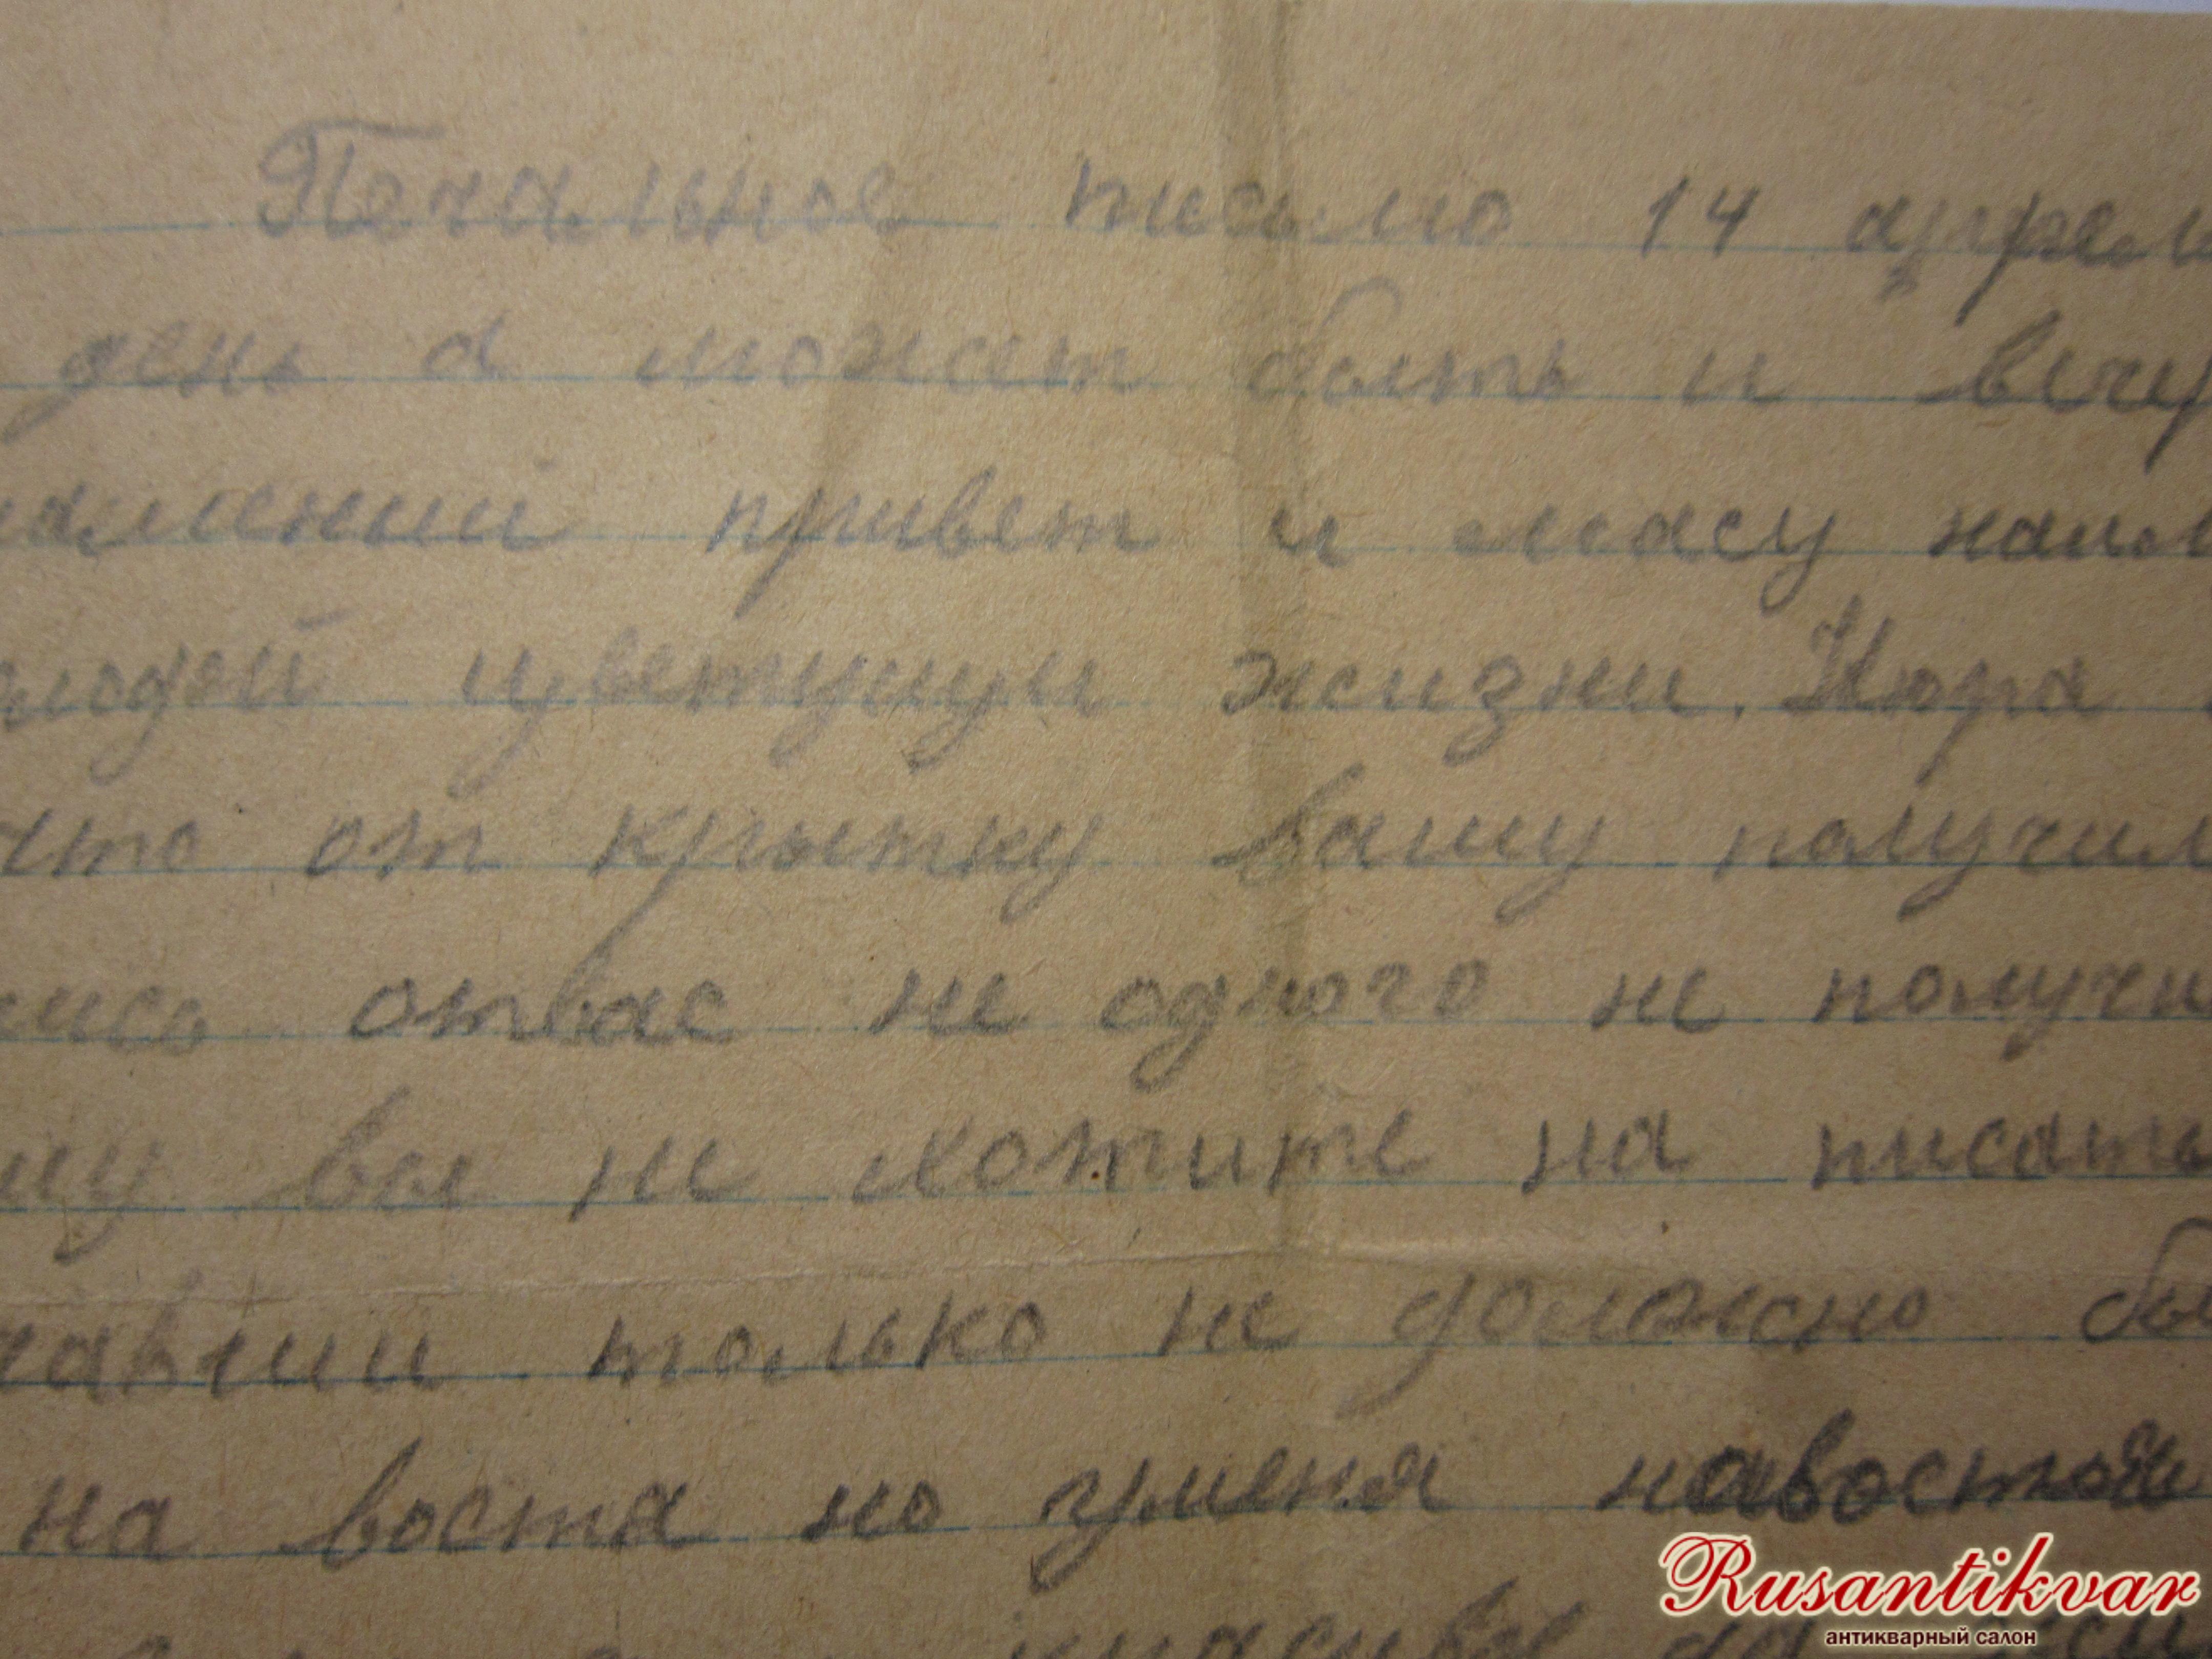 Печальное письмо 14 апрел
день а может быть и вечу
привет и масу наил
цветущуи жизни. Нюра
что от крытку вашу получил
отвас не одного не получи
му вы не хотите на писать
только не должно бы
на воста но уменя навостоя
Rusantikvar
антикварный салон